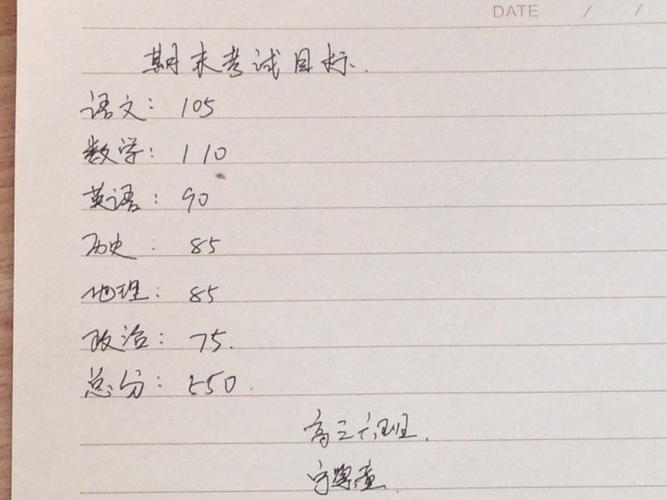 DATE / /
期末考试目标.
语文: 105
数学: 110
英语: 90
历史: 85
地理: 85
政治: 75.
总分: 550.
高三六班.